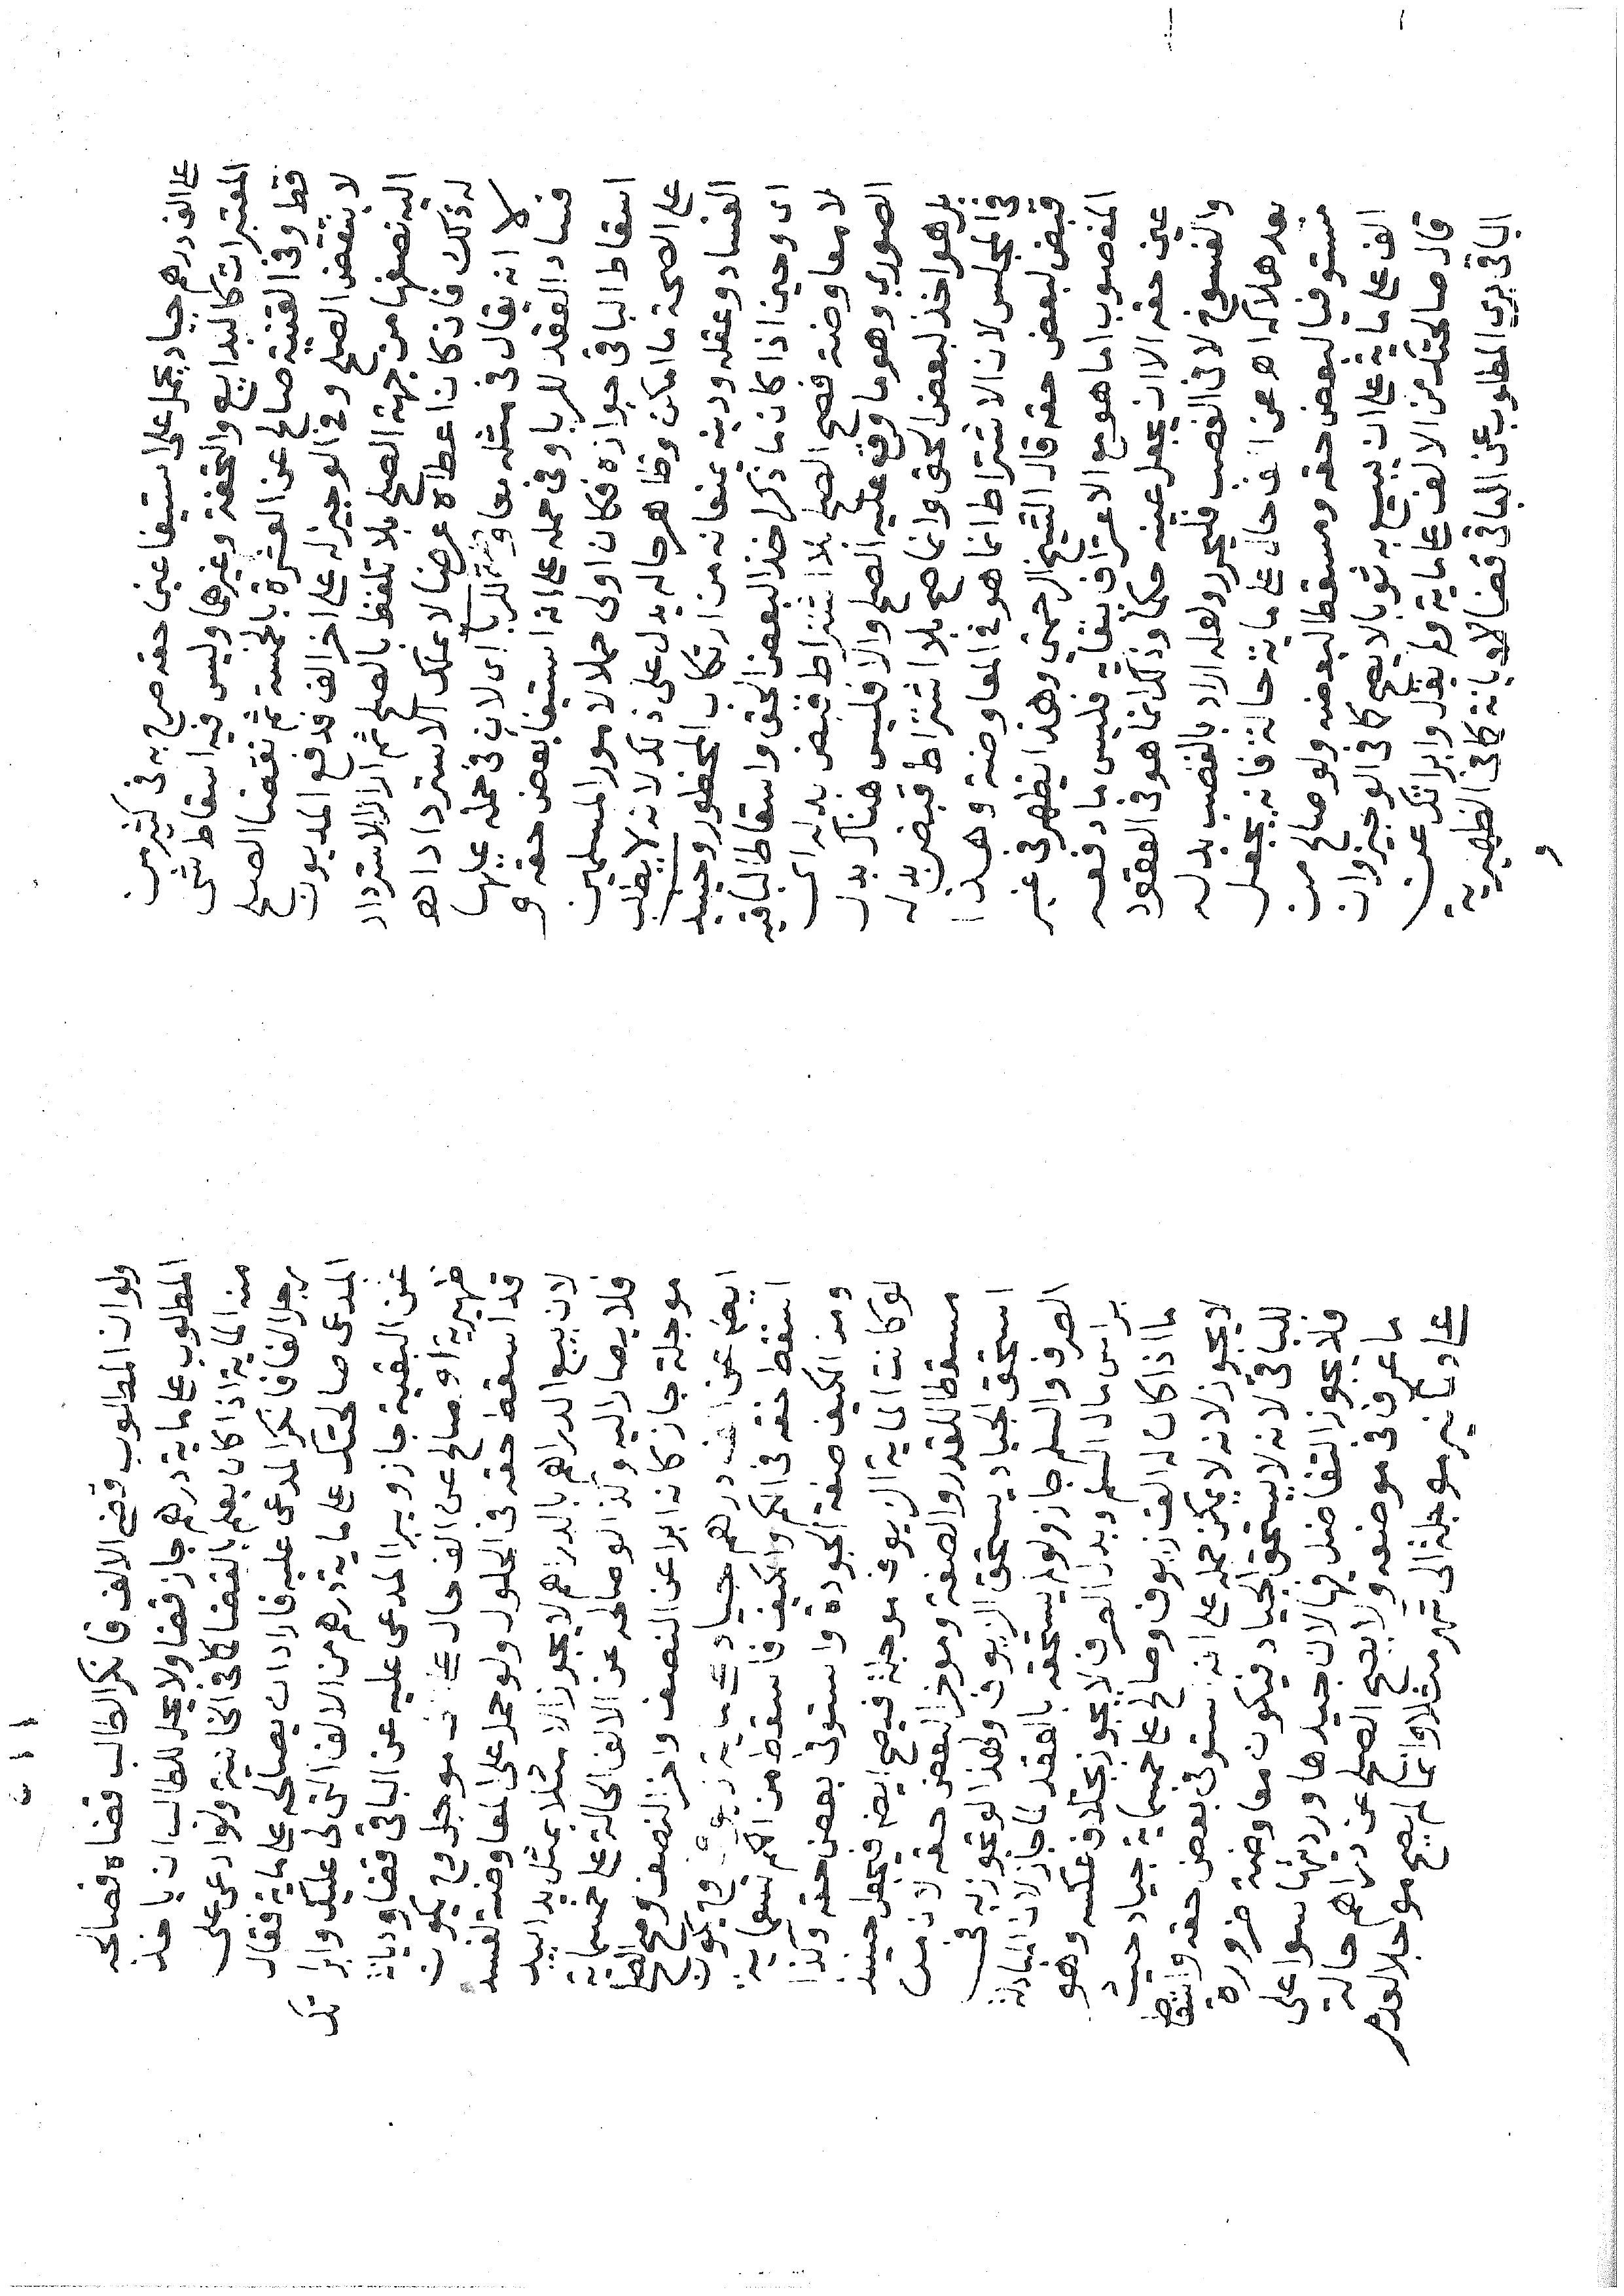 على الف درهم جياد يحمل على استيفا عين حقه صرح به فى كثير من
المعتبرات كالبدايع والتحفة وغيرها وليس فيه اسقاط شى
فقط وفى القنية صالح عن العشرة بالخمسة ثم نقضا الصلح
لا ينتقض الصلح وفى الوجيز له على اخر الف فدفع المديون
اليه نصفها من جهة الصلح بلا تلفظ بالصلح ثم اراد الاسترداد
له ذلك فان كان اعطاه عرضا لا يملك الاسترداد اه
لا انه يقال فى مثله معاوضة للربا اى لان فى حمله عليها
فساد العقد للربا وفى حمله على انه استيفا بعض حقه و
اسقاط الباقى جوازه فكان اولى حملا لامور المسلمين
على الصحة ما امكن وظاهر حاله يدل على ذلك لانه لا يطلب
الفساد وعقله ودينه يمنعانه من ارتكاب المحظور وحينيذ
اى وحين اذا كان ما ذكر اخذ البعض الحق واسقاط لباقيه
لا معاوضة فصح الصلح بلا اشتراط قبض بدله اى
الصورى وهو ما وقع عليه الصلح والا فليس هناك بدل
بل هو اخذ لبعض الحق وانما صح بلا اشتراط قبض بدله
فى المجلس لان الاشتراط انما هو فى المعاوضة وهذا
قبض لبعض حقه قال الشيخ الرحمتى وهذا يظهر فى غير
المغصوب اما هو مع الاعتراف ببقايه فليس ما دفعه
عين حقه الا ان يجعل عينه حكما وذلك انما هو فى العقود
والفسوخ لا فى الغصب فليحرر ولعله اراد بالغصب بدله
بعد هلاكه اه عن الف حال على ماية حالة فانه يجعل
مستوفيا لبعض حقه ومسقطا لبعضه ولو صالح من
الف على ماية على ان يبيع به ثوبا لا يصح كما فى الوجيز وان
قال صالحتك من الالف على ماية ولم يقل وابراتك عن
الباقى برى المطلوب عن الباقى قضا لا ديانة كما فى الظهيرية
و
ولو ان المطلوب قضى الالف فانكر الطالب قضاه فصالحه
المطلوب على ماية درهم جاز قضا ولا يحل للطالب ان ياخذ
منه الماية اذا كان يعلم بالقضا كما فى الخانية ولو ادعى على
رجل الفا فانكر المدعى عليه فاراد ان يصالحه على ماية فقال
المدعى صالحتك على ماية درهم من الالف التى لى عليك وابراتك
عن البقية جاز ويبرا المدعى عليه عن الباقى قضا وديانة
ظهيرية او صالح عن الف حال على الف موجل وح يكون
قد اسقط حقه فى الحلول ولو حمل على المعاوضة لفسد
لان بيع الدراهم بالدراهم لا يجوز الا مثلا بمثل يدا بيد
فلا يصار اليه وكذا لو صالحه عن الالف الحالة على خمسماية
موجلة جاز كانه ابرا عن النصف واخر النصف وصح الصلح
ايضم عن الف درهم جياد على ماية زيوف وح يكون
اسقط حقه فى الكم والكيف فاسقط من الكم تسعماية
ومن الكيف صفة الجودة واستوفى بعض حقه وكذا
لو كانت الماية الزيوف موجلة فيصح ايضم فيجعل حينيذ
مسقطا للقدر والصفة وموخرا لبعض حقه لان من
استحق الجياد يستحق الزيوف ولهذا لو تجوز به فى
الصرف والسلم جاز ولو لم يستحقه بالعقد لما جاز لان المبادلة
براس مال السلم وبدل الصرف لا يجوز بخلاف عكسه وهو
ما اذا كان له الف زيوف وصالح على خمسماية جياد حيث
لا يجوز لانه لا يمكن حمله على انه استوفى بعض حقه واسقط
للباقى لانه لا يستحق الجياد فيكون معاوضة ضرورة
فلا يجوز التفاضل فيها لان جيدها ورديها سوا على
ما عرف فى موضعه ولا يصح الصلح عن دراهم حالة
على دنانير موجلة الى شهر مثلا وانما لم يصح موجلا لعدم